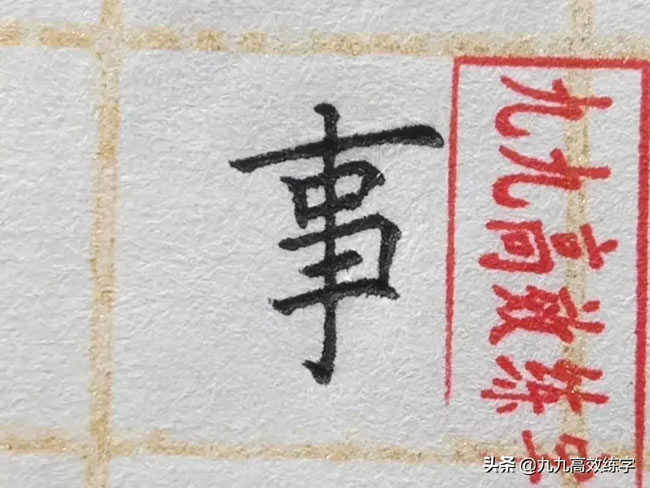 事
九九高效练字
头条 @九九高效练字